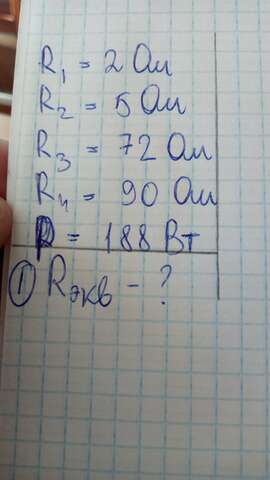 R₁ = 2 Ом
R₂ = 5 Ом
R₃ = 72 Ом
R₄ = 90 Ом
P = 188 Вт
① Rэкв - ?